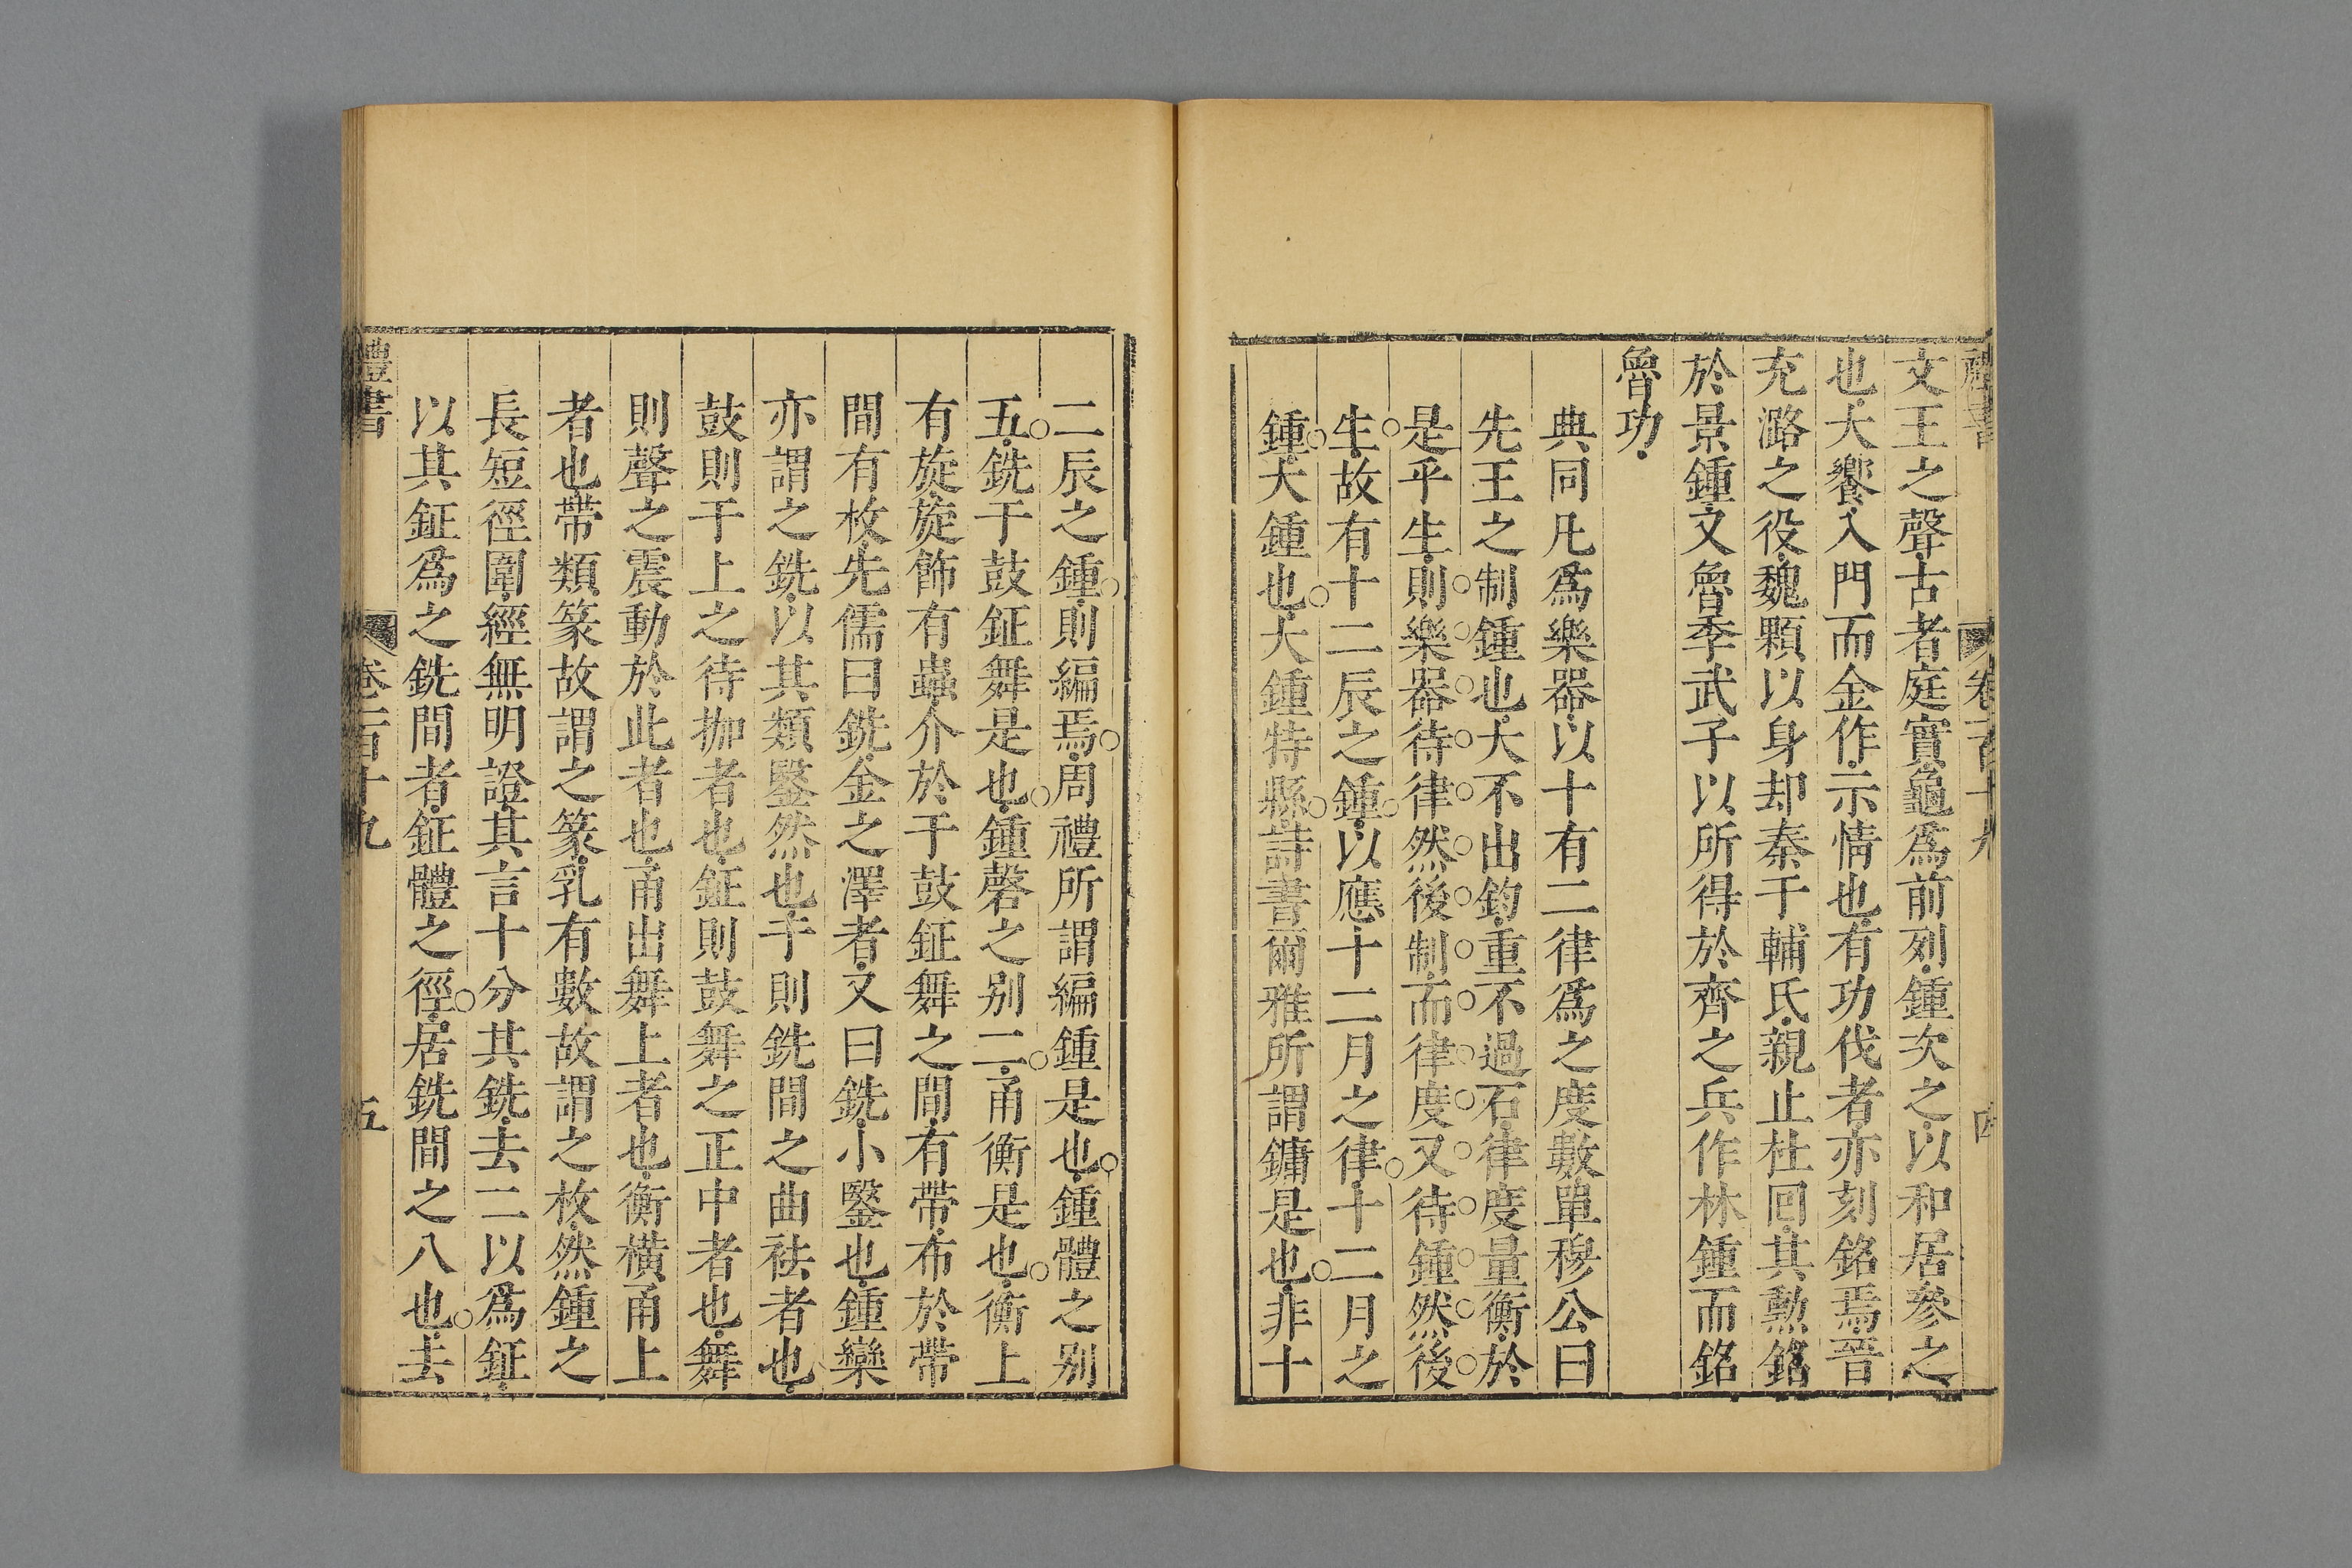 禮書 卷一百十九 四
文王之聲古者庭實龜爲前列鍾次之以和居參之
也大饗入門而金作示情也有功伐者亦刻銘焉晉
克潞之役魏顆以身却秦于輔氏親止杜回其勲銘
於景鍾又魯季武子以所得於齊之兵作林鍾而銘
魯功
典同凡爲樂器以十有二律爲之度數單穆公曰
先王之制鍾也大不出鈞重不過石律度量衡於
是乎生則樂器待律然後制而律度又待鍾然後
生故有十二辰之鍾以應十二月之律十二月之
鍾大鍾也大鍾特縣詩書爾雅所謂鏞是也非十
二辰之鍾則編焉周禮所謂編鍾是也鍾體之别
五銑于鼓鉦舞是也鍾磬之别二甬衡是也衡上
有旋旋飾有蟲介於于鼓鉦舞之間有帶布於帶
間有枚先儒曰銑金之澤者又曰銑小鑿也鍾欒
亦謂之銑以其類鑿然也于則銑間之曲袪者也
鼓則于上之待枷者也鉦則鼓舞之正中者也舞
則聲之震動於此者也甬出舞上者也衡橫甬上
者也帶類篆故謂之篆乳有數故謂之枚然鍾之
長短徑圍經無明證其言十分其銑去二以爲鉦
以其鉦爲之銑間者鉦體之徑居銑間之八也去
禮書 卷一百十九 五